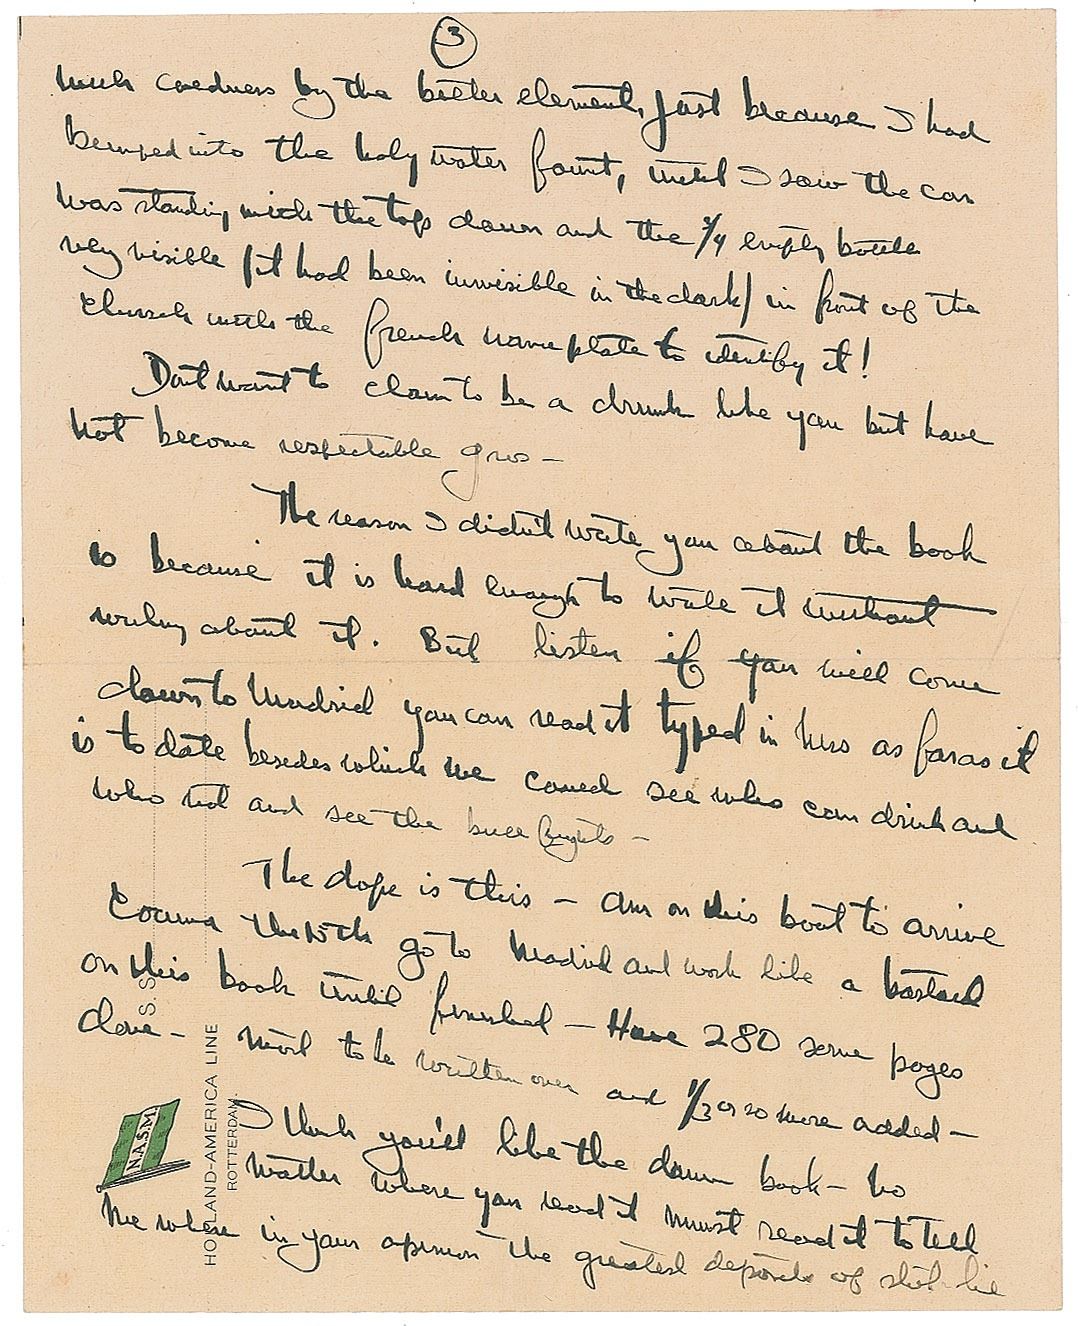 3
much coedness by the better element, just because I had
bumped into the holy water fount, until I saw the car
was standing with the top down and the 3/4 empty bottle
very visible (it had been invisible in the dark) in front of the
church with the french name plate to identify it!
Dont want to claim to be a drunk like you but have
not become respectable
The reason I didn't write you about the book
is because it is hard enough to write it without
writing about it. But listen if you will come
down to Madrid you can read it typed in mss as far as it
is to date besides which we could see who can drink and
who not and see the bull fights —
The dope is this — am on this boat to arrive
Coruna the 10th go to Madrid and work like a bastard
on this book until finished — Have 280 some pages
done — most to be written over and 1/3 or so more added —
I think you'll like the damn book — no
matter where you read it must read it to tell
me where in your opinion the greatest deposits of shit lie
S.S.
HOLLAND-AMERICA LINE
ROTTERDAM.
N.A.S.M.